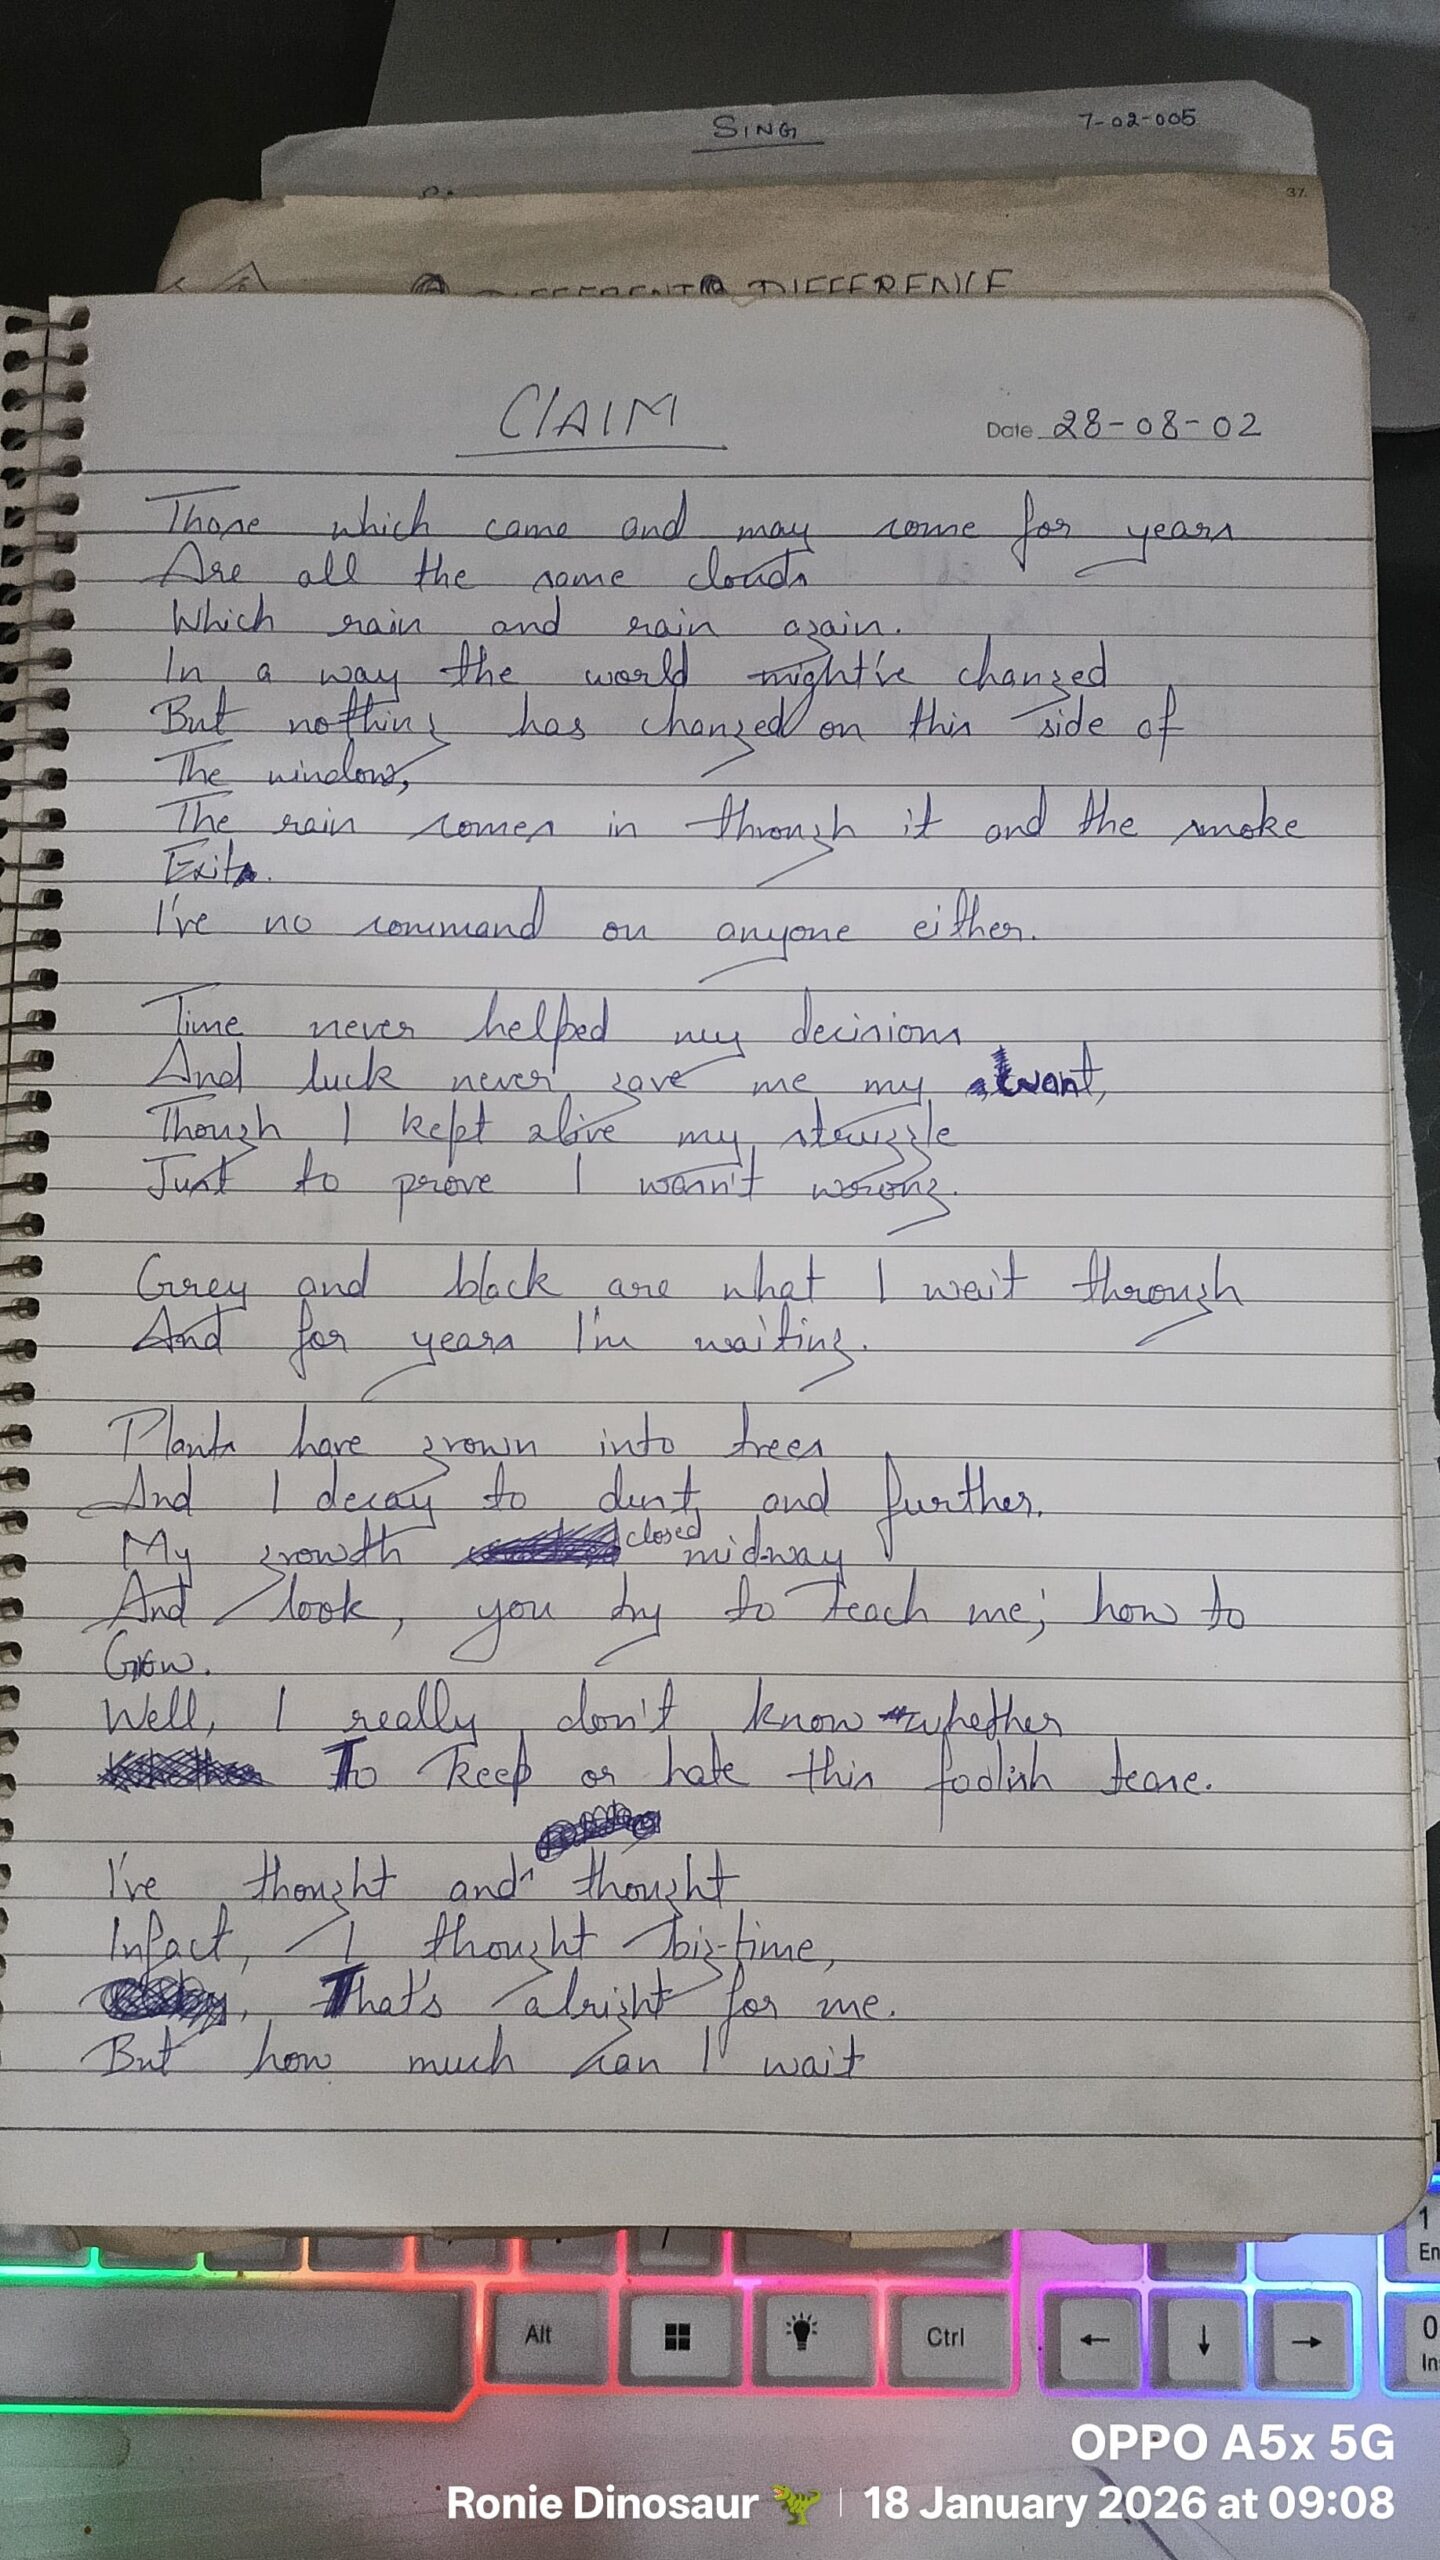 SING
7-02-005
37.
DIFFERENT DIFFERENCE
CLAIM
Date 28-08-02
Those which came and may come for years
Are all the same clouds
Which rain and rain again.
In a way the world might've changed
But nothing has changed on this side of
The window,
The rain comes in through it and the smoke
Exits.
I've no command on anyone either.
Time never helped my decisions
And luck never gave me my want,
Though I kept alive my struggle
Just to prove I wasn't wrong.
Grey and black are what I wait through
And for years I'm waiting.
Plants have grown into trees
And I decay to dust, and further.
My growth closed midway
And look, you try to teach me; how to
Grow.
Well, I really don't know whether
To keep or hate this foolish tease.
I've thought and thought
Infact, I thought big-time,
That's alright for me.
But how much can I wait
Alt
Ctrl
1
En
0
In
OPPO A5x 5G
Ronie Dinosaur 🦖 | 18 January 2026 at 09:08